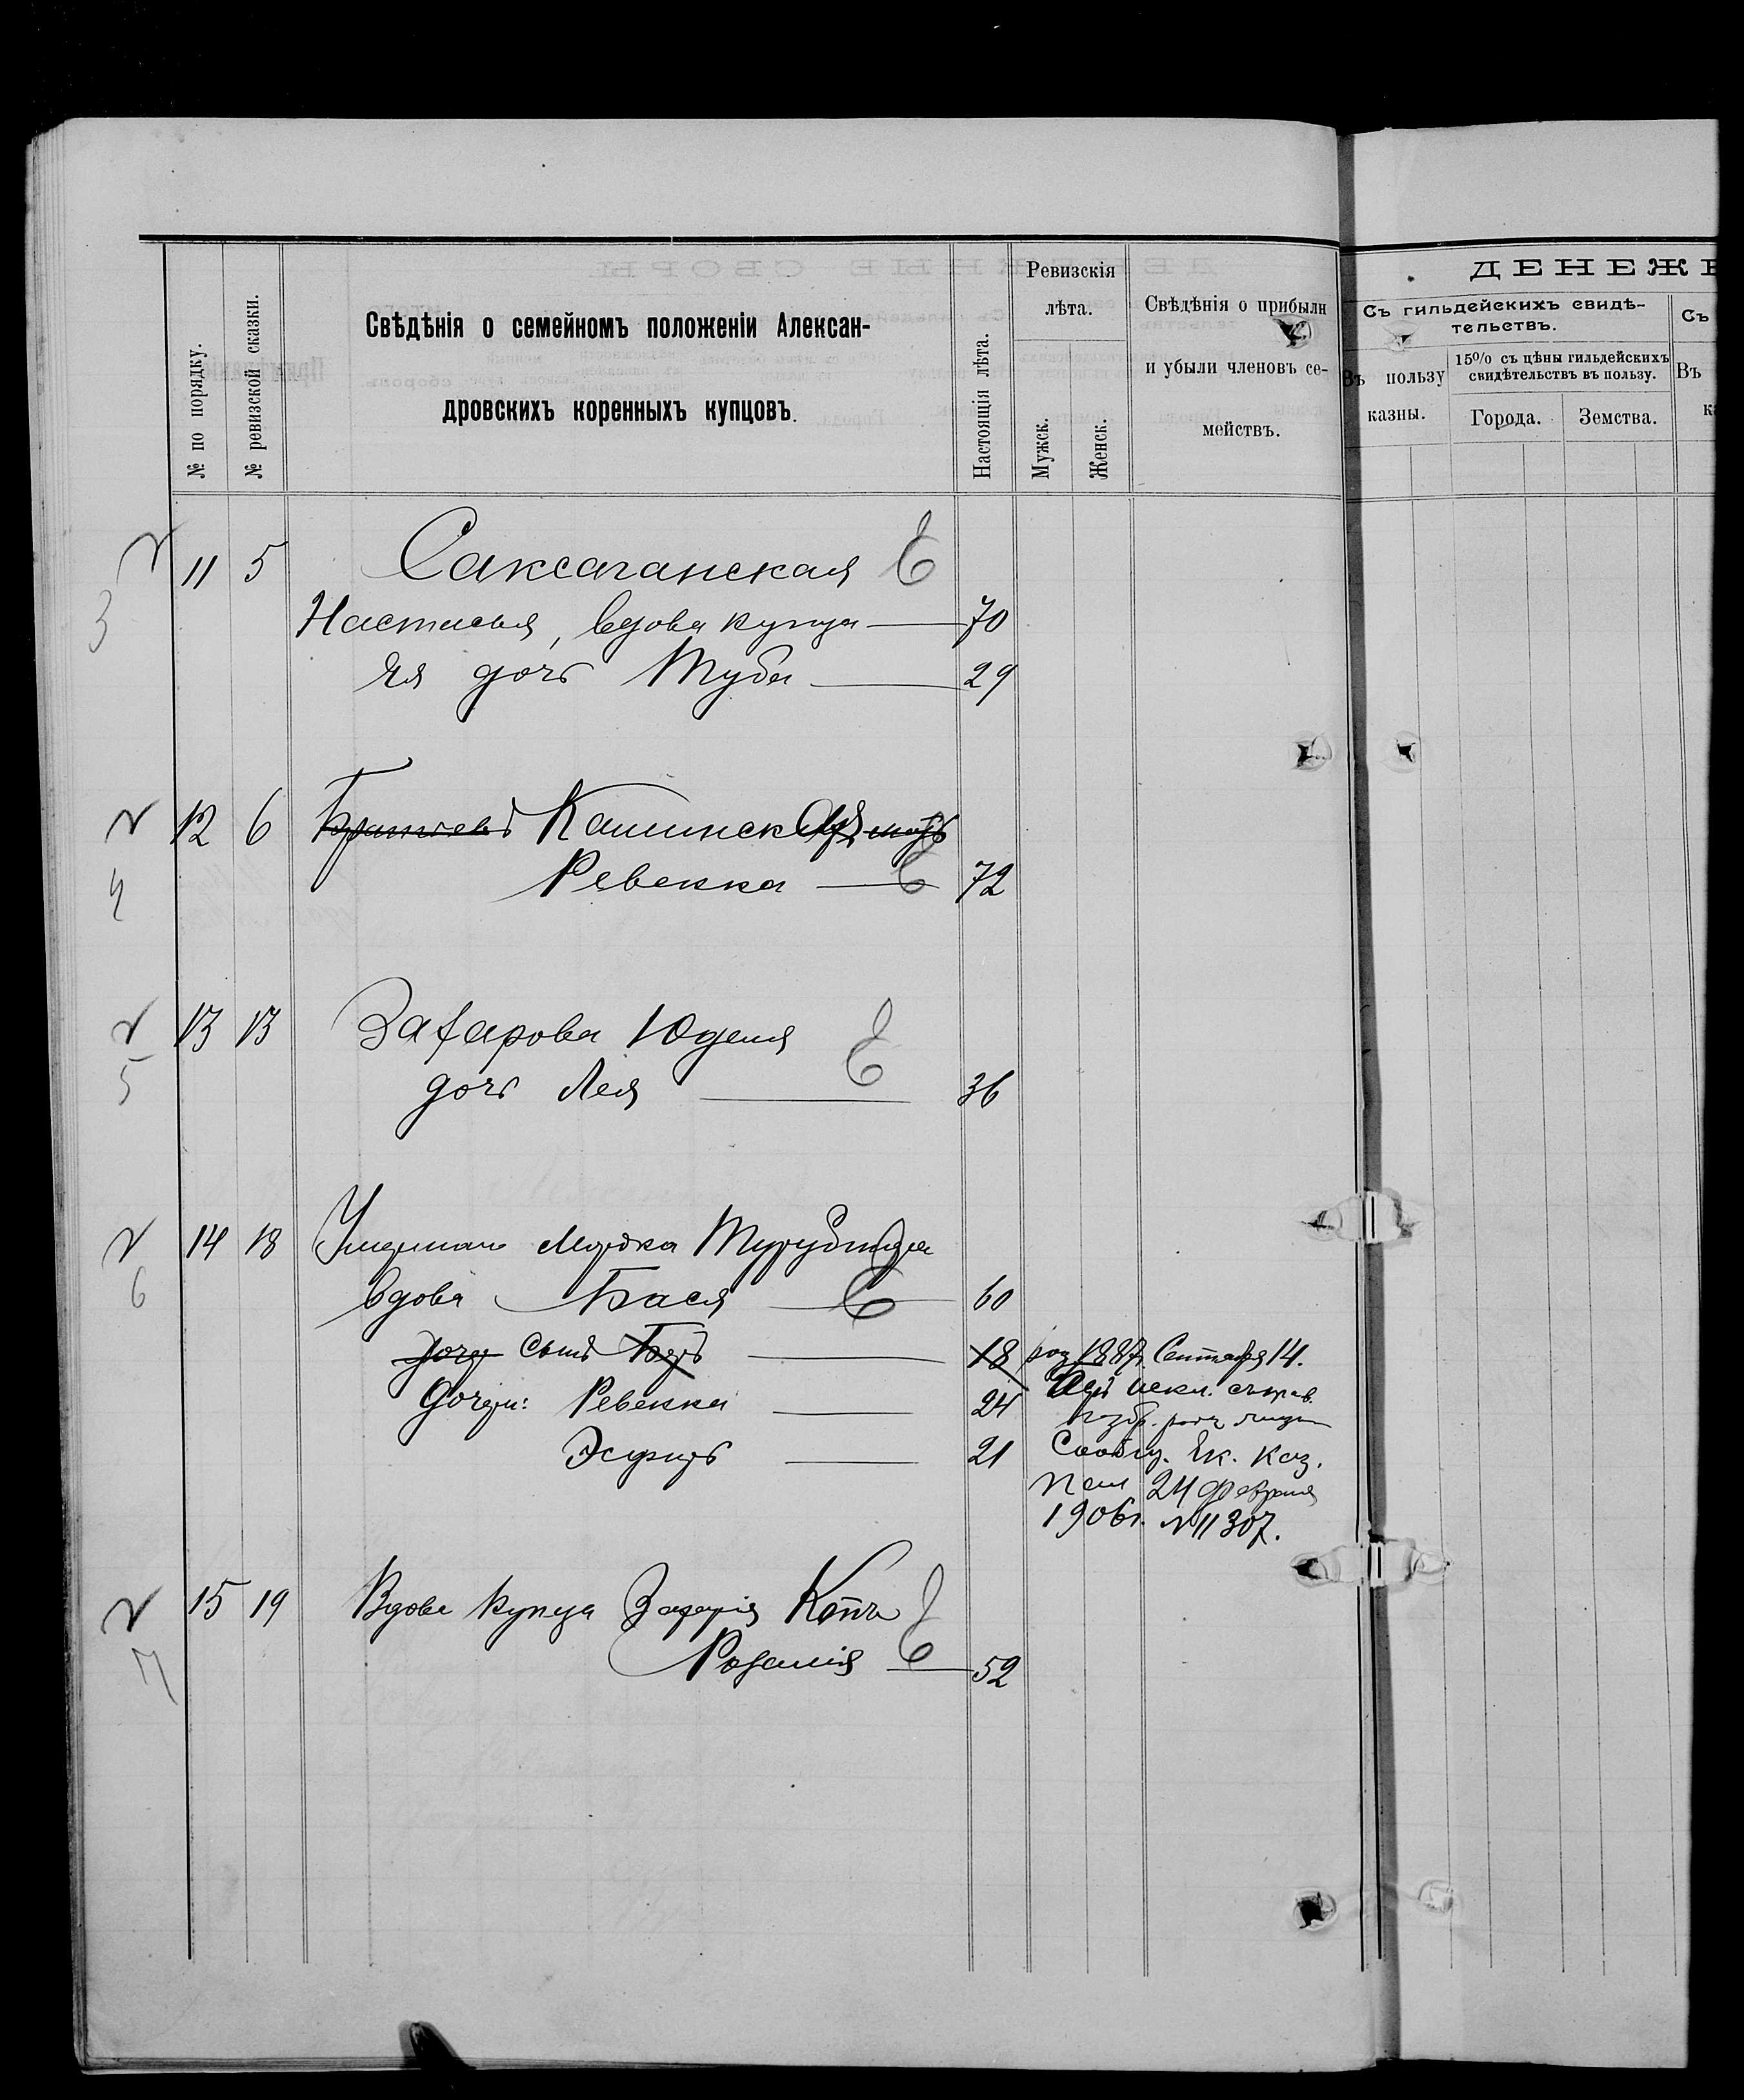 № по порядку.
№ ревизской сказки.
Свѣдѣнія о семейномъ положеніи Алексан-
дровскихъ коренныхъ купцовъ.
Настоящія лѣта.
Ревизскія
лѣта.
Мужск.
Женск.
Свѣдѣнія о прибыли
и убыли членовъ се-
мействъ.
ДЕНЕЖ
Съ гильдейскихъ свидѣ-
тельствъ.
Въ пользу
казны.
15% съ цѣны гильдейскихъ
свидѣтельствъ въ пользу.
Города.
Земства.
Съ
Въ
к
3 11 5 Саксаганская Е
Настасья, вдова купца — 70
Ея дочь Туба — 29
4 12 6 Братьевъ Капинская мать
Ревекка — Е 72
5 13 13 Захарова Юделя Е
дочь Лея — 36
6 14 18 Умершаго Мордка
вдова Бася — Е 60
Дочери Сынъ — 18 род 1887 Сентября 14.
Дочери: Ревекка — 24 искл.
Эсфирь — 21 Сообщ. Ек. Каз.
Пал 24 февраля
1906 г. № 11307.
7 15 19 Вдова купца Захарія Е
Розалія — 52